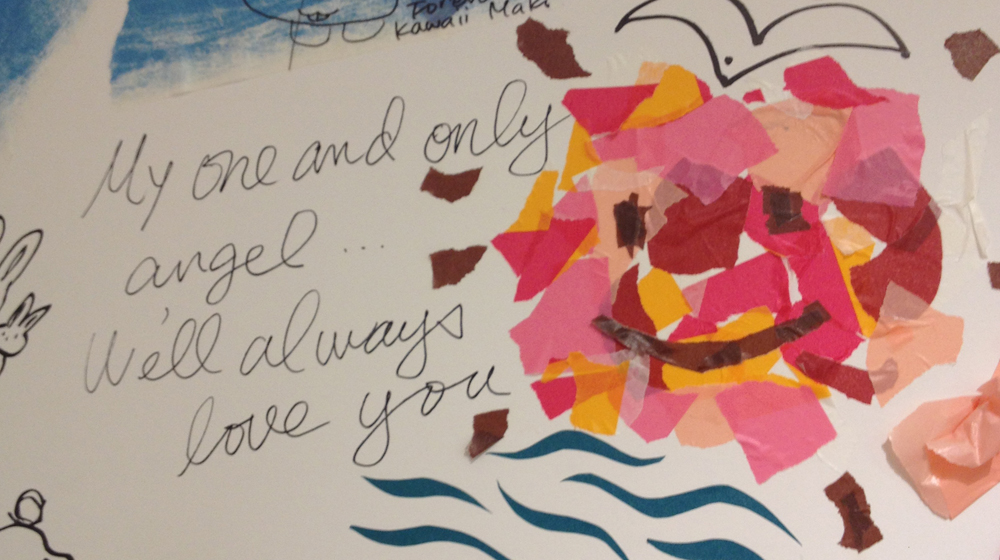 Kawaii Maki
My one and only
angel...
We'll always
love you